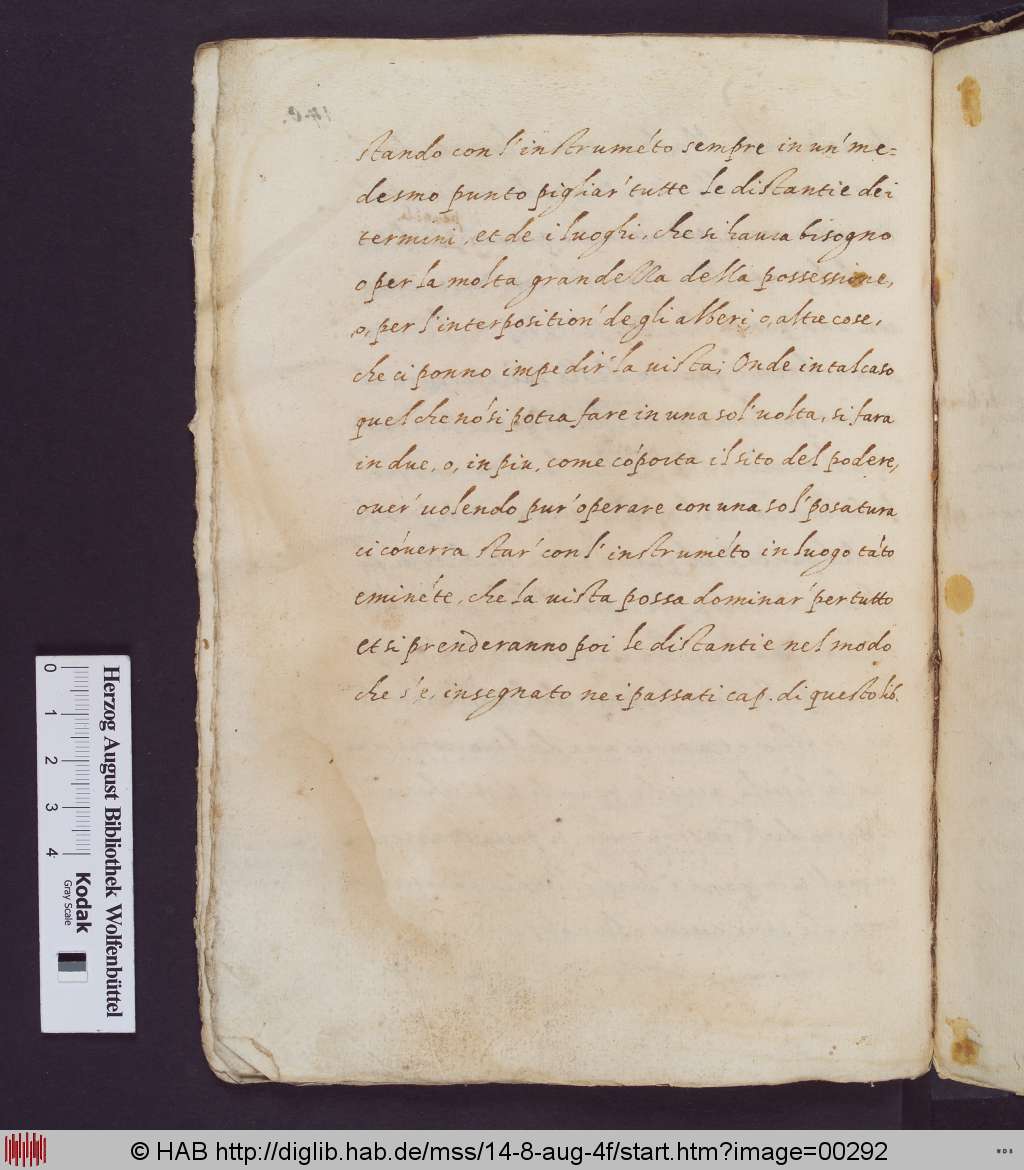 stando con l'instrumẽto sempre in un' me=
desmo punto pigliar' tutte le distantie dei
termini, et de i luoghi, che si haura bisogno
o per la molta grandezza della possessione,
o, per l'interposition' de gli alberi o, altre cose,
che ci ponno impedir' la uista; Onde in tal caso
quel che nõ si potra fare in una sol' uolta, si fara
in due, o, in piu, come cõporta il sito del podere,
ouer' uolendo pur' operare con una sol' posatura
ci cõuerra star' con l' instrumẽto in luogo tãto
eminẽte, che la uista possa dominar' per tutto
et si prenderanno poi le distantie nel modo
che s'e, insegnato ne i passati cap. di questo lib.
Herzog August Bibliothek Wolfenbüttel
0 1 2 3 4
Kodak
Gray Scale
© HAB http://diglib.hab.de/mss/14-8-aug-4f/start.htm?image=00292